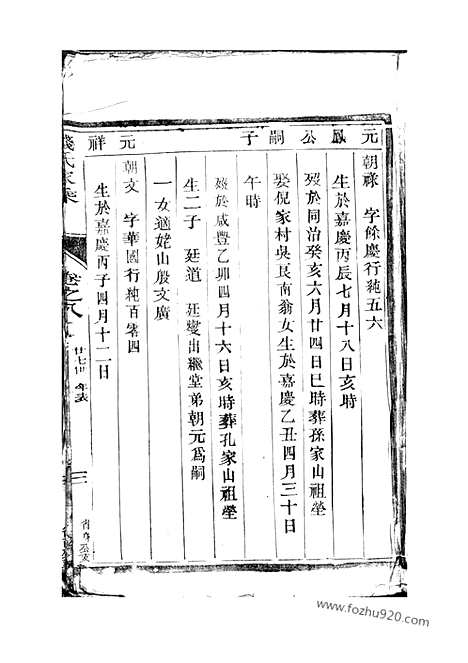 元鳳公嗣子
元祥
朝祿 字餘慶行純五六
生於嘉慶丙辰七月十八日亥時
歿於同治癸亥六月廿四日巳時葬孫家山祖塋
娶倪家村吳長南翁女生於嘉慶乙丑四月三十日
午時
歿於咸豐乙卯四月十六日亥時葬孔家山祖塋
生二子 廷道 廷燮出繼堂弟朝元爲嗣
一女適姥山殷文廣
朝文 字華國行純百零四
生於嘉慶丙子四月十二日
錢氏家乘
卷之八
廿七世 年表
www.fozhu920.com